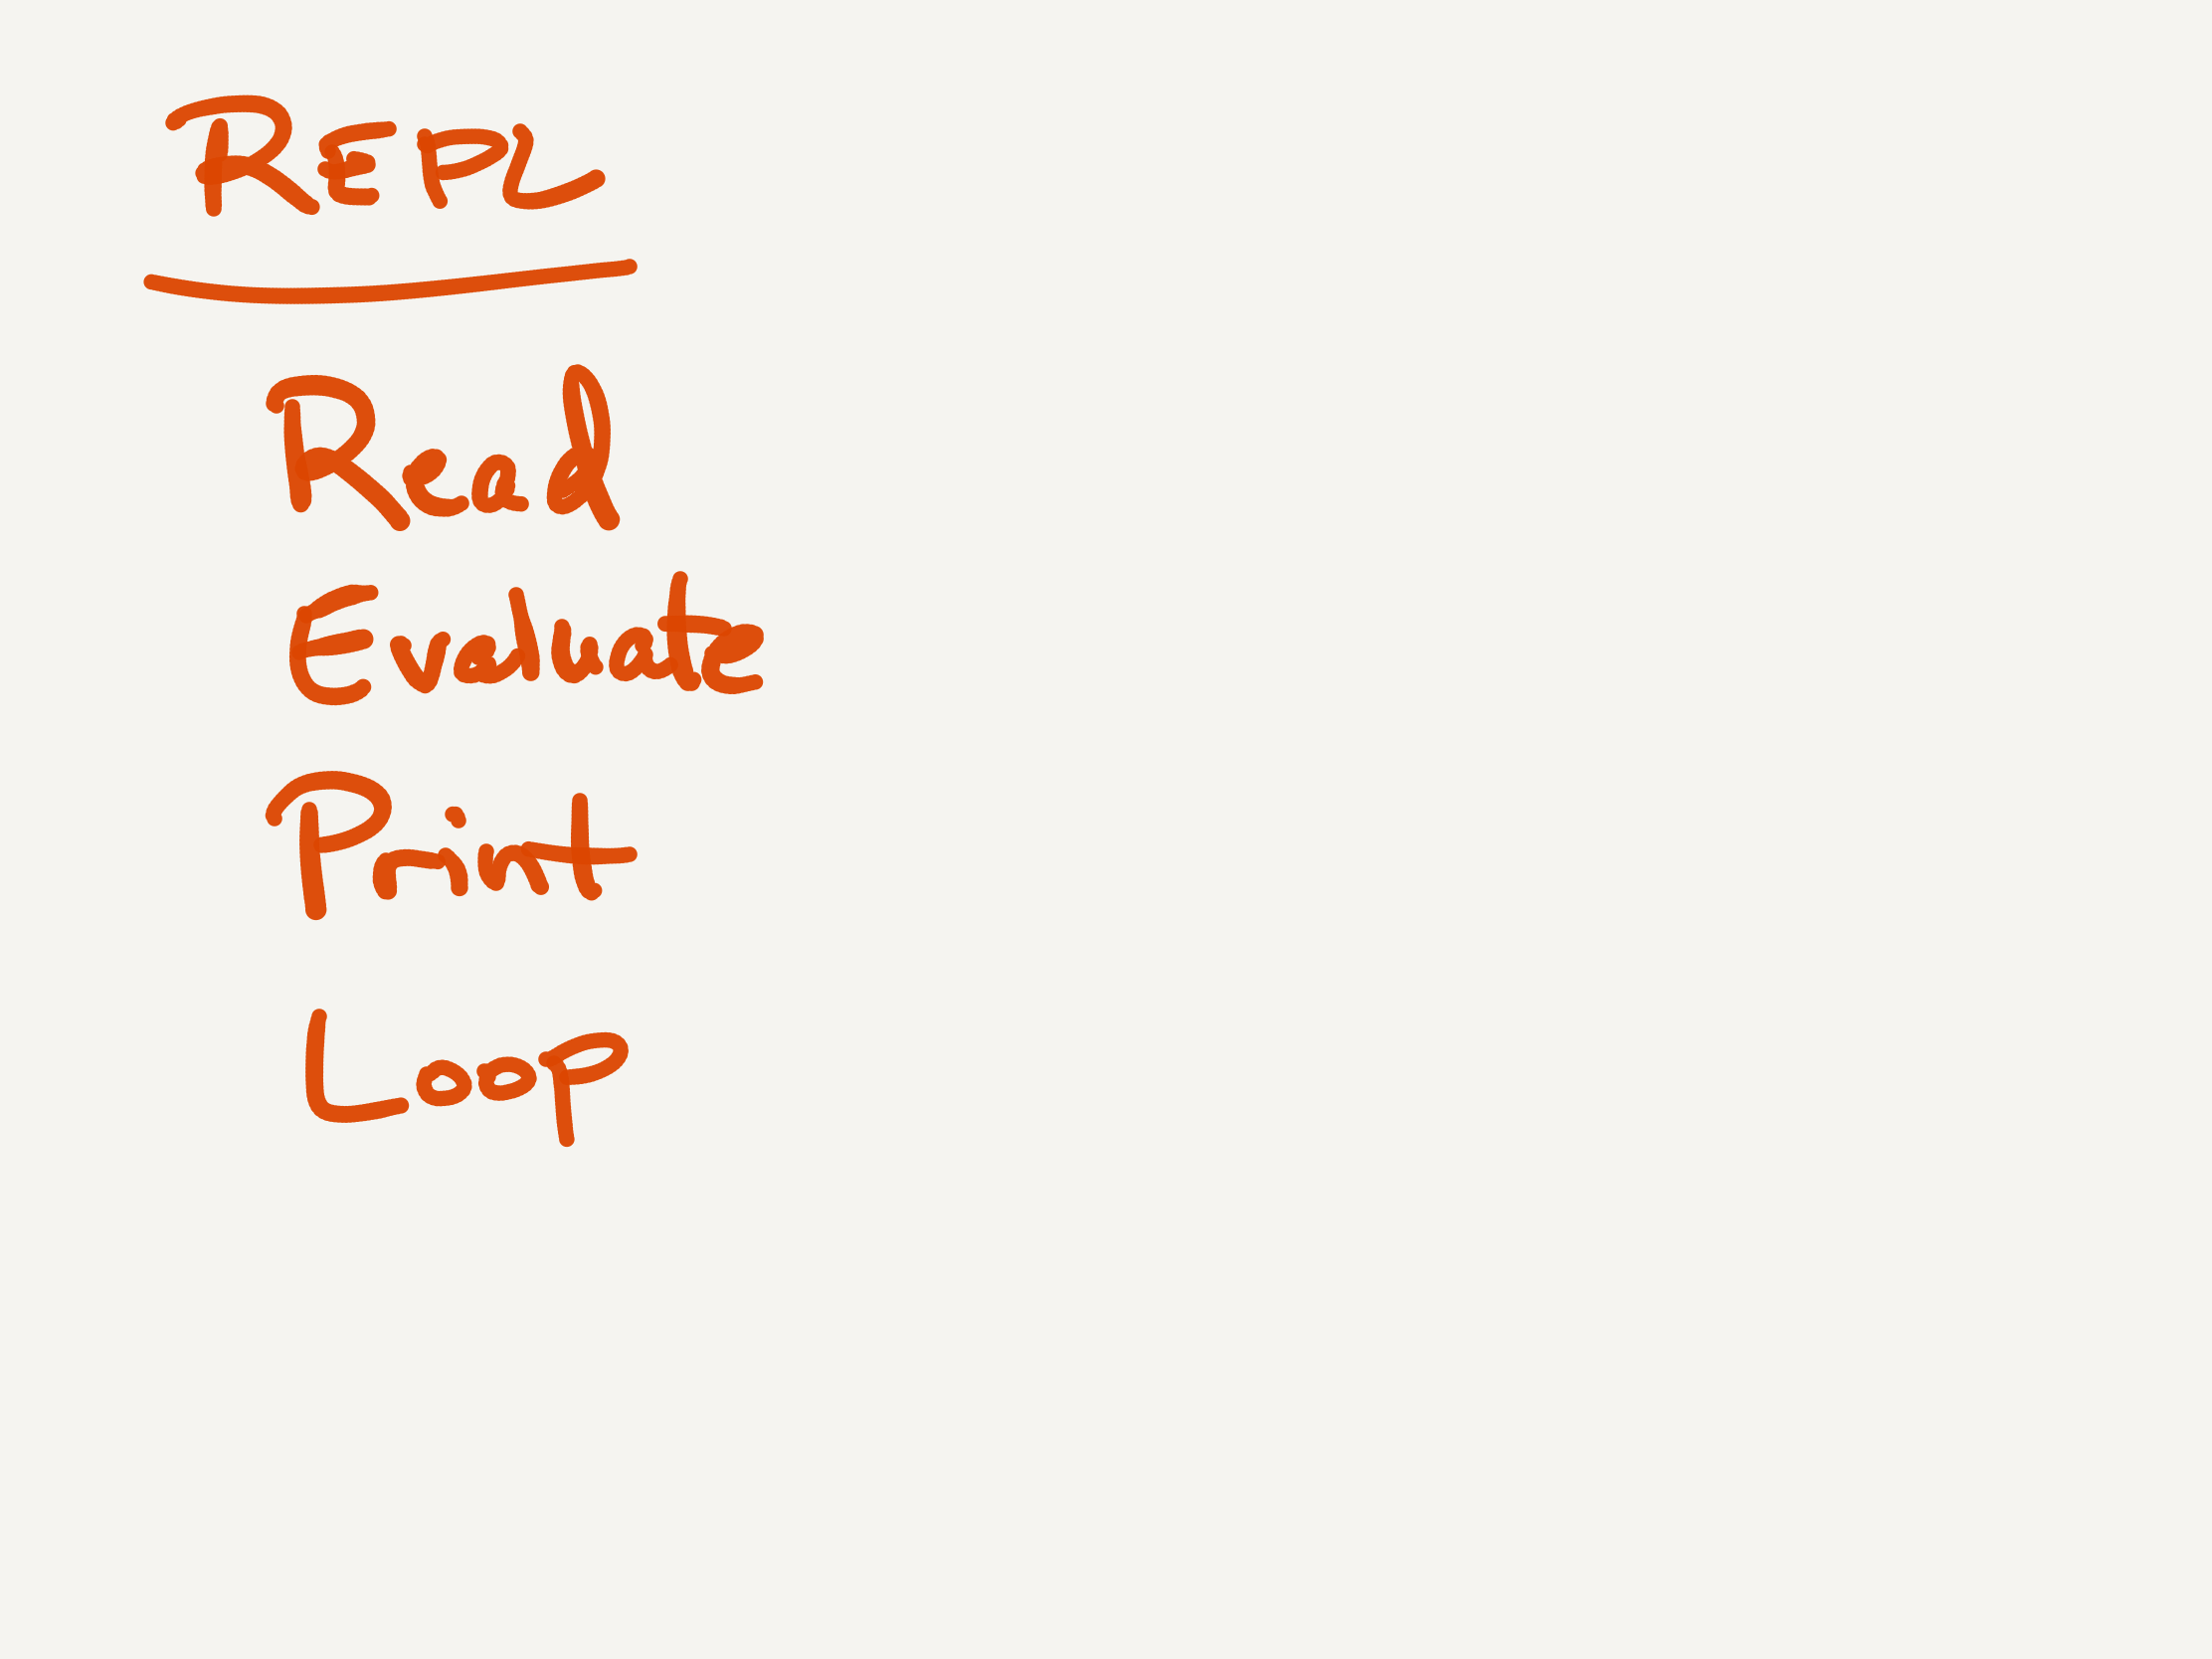 REPL
Read
Evaluate
Print
Loop